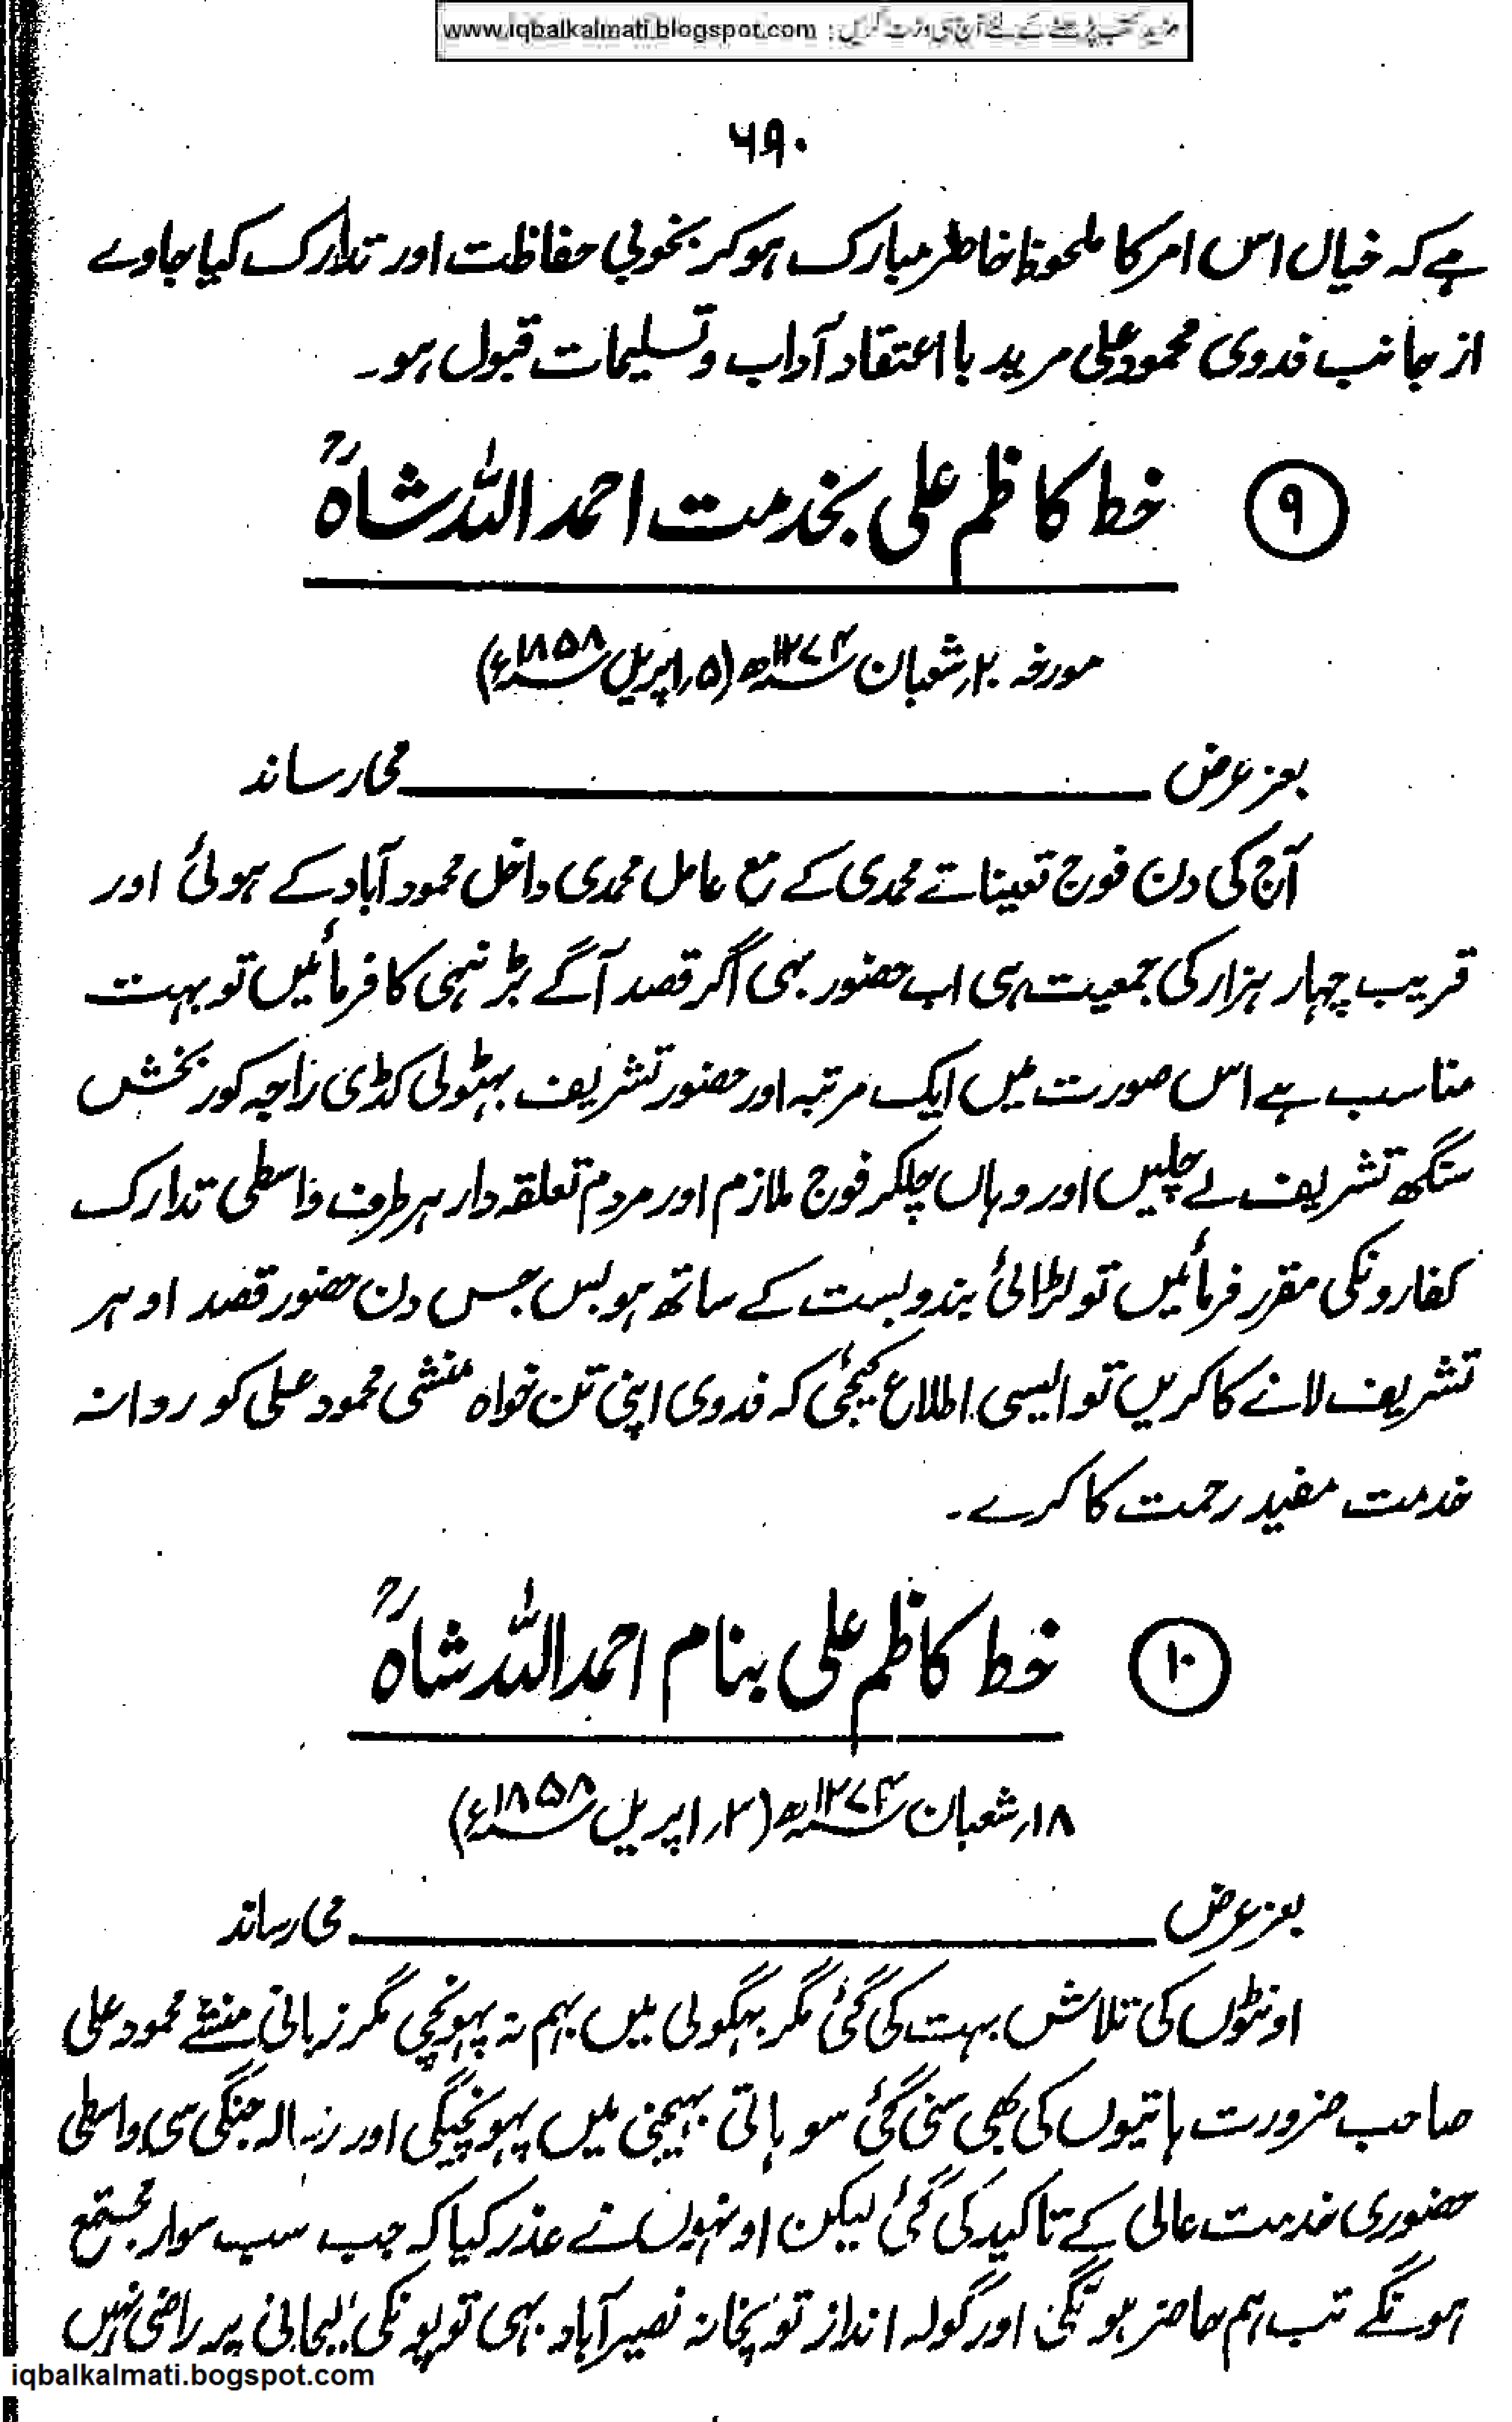 مزید کتب پڑھنے کے لئے آج ہی وزٹ کریں : www.iqbalkalmati.blogspot.com
۶۹۰
ہے کہ خیال اس امر کا ملحوظ خاطر مبارک ہوکر بخوبی حفاظت اور تدارک کیا جاوے
از جانب فدوی محمود علی مرید با اعتقاد آداب و تسلیمات قبول ہو۔
۹ خط کاظم علی بخدمت احمد اللہ شاہؒ
مورخہ ۲۰ر شعبان ۱۲۷۴ھ (۵ر اپریل ۱۸۵۸ء)
بعز عرض ــــــــــ می رساند
آج کی دن فوج تعیناتے محمدی کے مع عامل محمدی داخل محمود آباد کے ہوئی اور
قریب چہار ہزار کی جمعیت ہی اب حضور بہی اگر قصد آگے بڑ نہی کا فرمائیں تو بہت
مناسب ہے اس صورت میں ایک مرتبہ اور حضور تشریف بہٹولی کڈی راجہ کور بخش
سنگھ تشریف لے چلیں اور وہاں چلکر فوج ملازم اور مردم تعلقہ دار ہر طرف واسطی تدارک
کفارونکی مقرر فرمائیں تو لڑائی بندوبست کے ساتھ ہو بس جس دن حضور قصد اوہر
تشریف لانے کا کریں تو ایسی اطلاع کیجئی کہ فدوی اپنی تن خواہ منشی محمود علی کو روانہ
خدمت مفید رحمت کا کرے۔
۱۰ خط کاظم علی بنام احمد اللہ شاہؒ
۱۸ر شعبان ۱۲۷۴ھ (۳ر اپریل ۱۸۵۸ء)
بعز عرض ــــــــــ می رساند
اونٹوں کی تلاش بہت کی گئی مگر بہگولی میں بہم نہ پہونچی مگر زبانی منشئے محمود علی
صاحب ضرورت ہاتیوں کی بھی سنی گئی سو ہاتی بہیجنی میں پہونچیگی اور رسالہ جنگی سی واسطی
حضوری خدمت عالی کے تاکید کی گئی لیکن اونہوں نے عذر کیا کہ جب سب سوار مجتمع
ہونگے تب ہم حاضر ہونگی اور گولہ انداز توپخانہ نصیرآباد بہی توپونکی لیجانی پر راضی نہیں
iqbalkalmati.bogspot.com